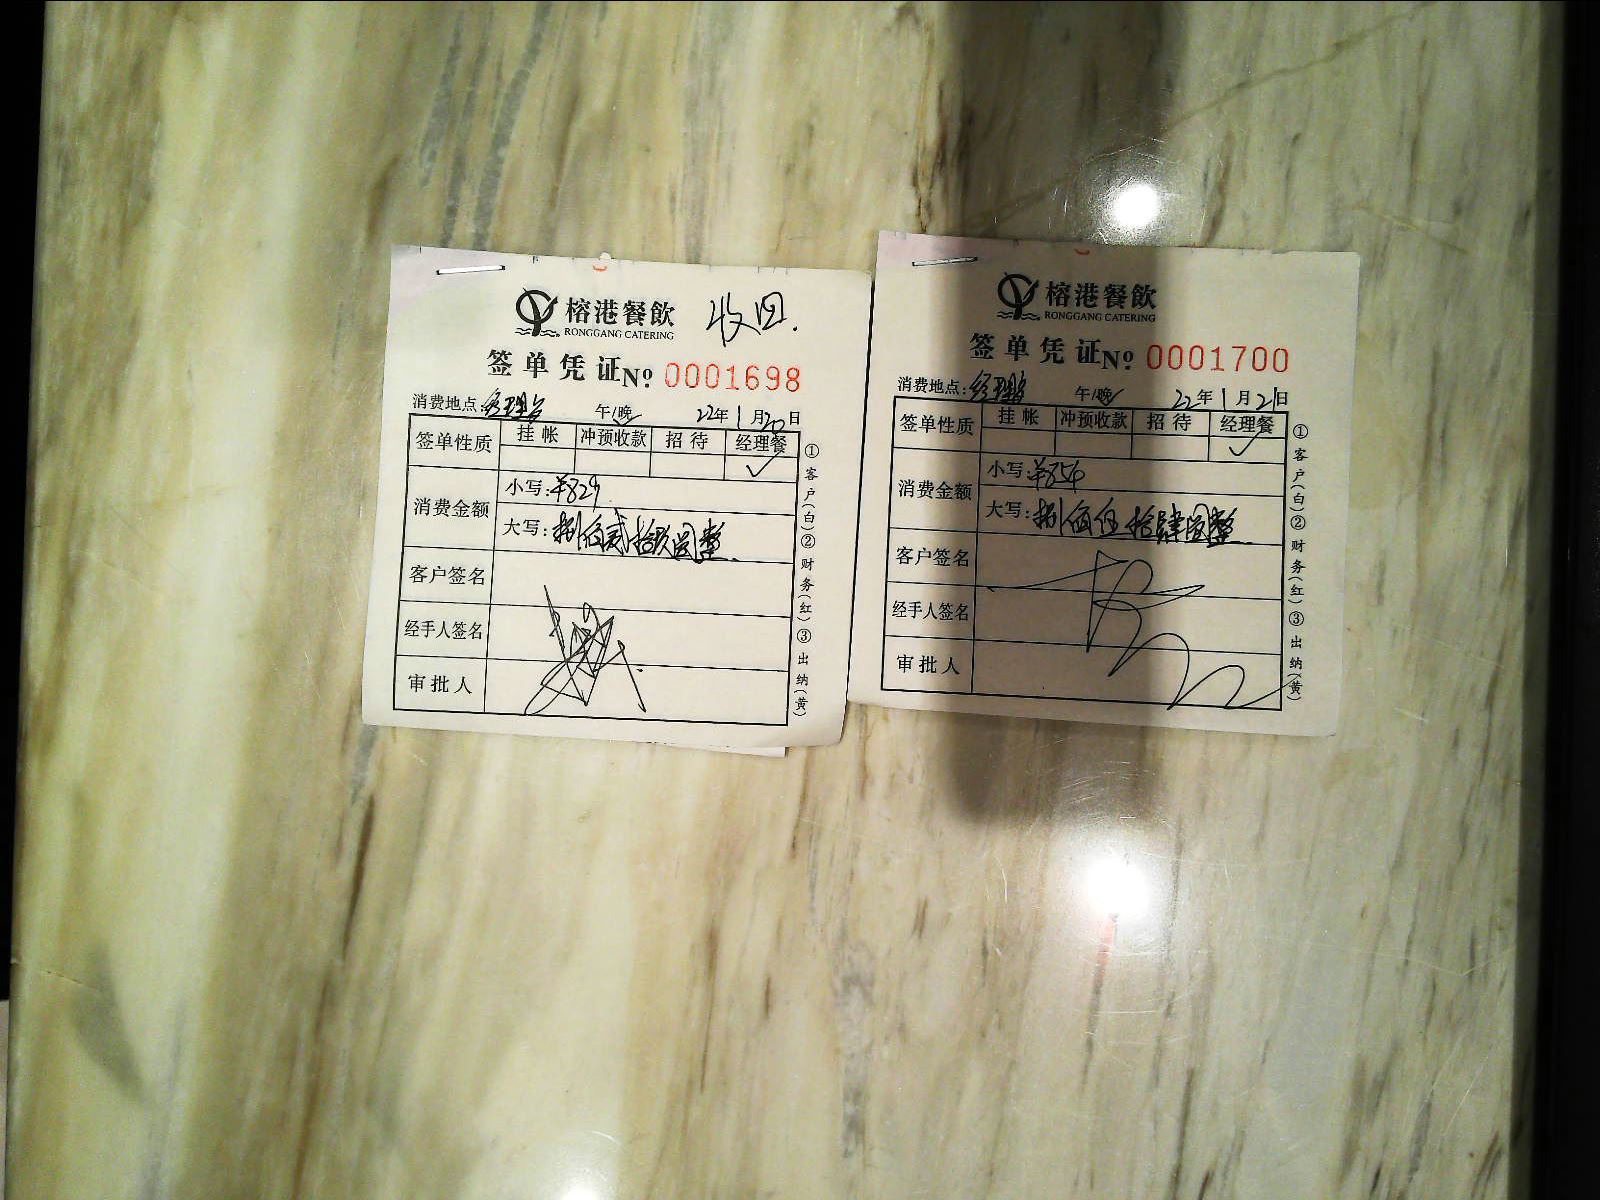 榕港餐飲 收回.
RONGGANG CATERING
签单凭证 No 0001698
消费地点: 经理餐 午/晚✓ 22年1月20日
签单性质 挂帐 冲预收款 招待 经理餐
✓
消费金额 小写:¥829
大写: 捌佰贰拾玖圆整.
客户签名
经手人签名
审批人
①客户(白)②财务(红)③出纳(黄)
榕港餐飲
RONGGANG CATERING
签单凭证 No 0001700
消费地点: 经理餐 午/晚✓ 22年1月21日
签单性质 挂帐 冲预收款 招待 经理餐
✓
消费金额 小写:¥854
大写: 捌佰伍拾肆圆整.
客户签名
经手人签名
审批人
①客户(白)②财务(红)③出纳(黄)